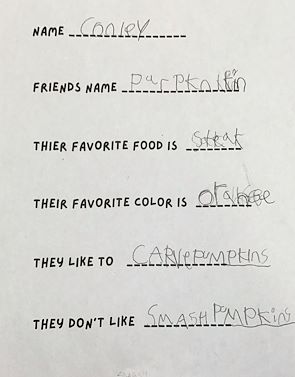 NAME Conley
FRIENDS NAME
THIER FAVORITE FOOD IS steak
THEIR FAVORITE COLOR IS
THEY LIKE TO CARVE PUMPKINS
THEY DON'T LIKE SMASH PUMPKINS